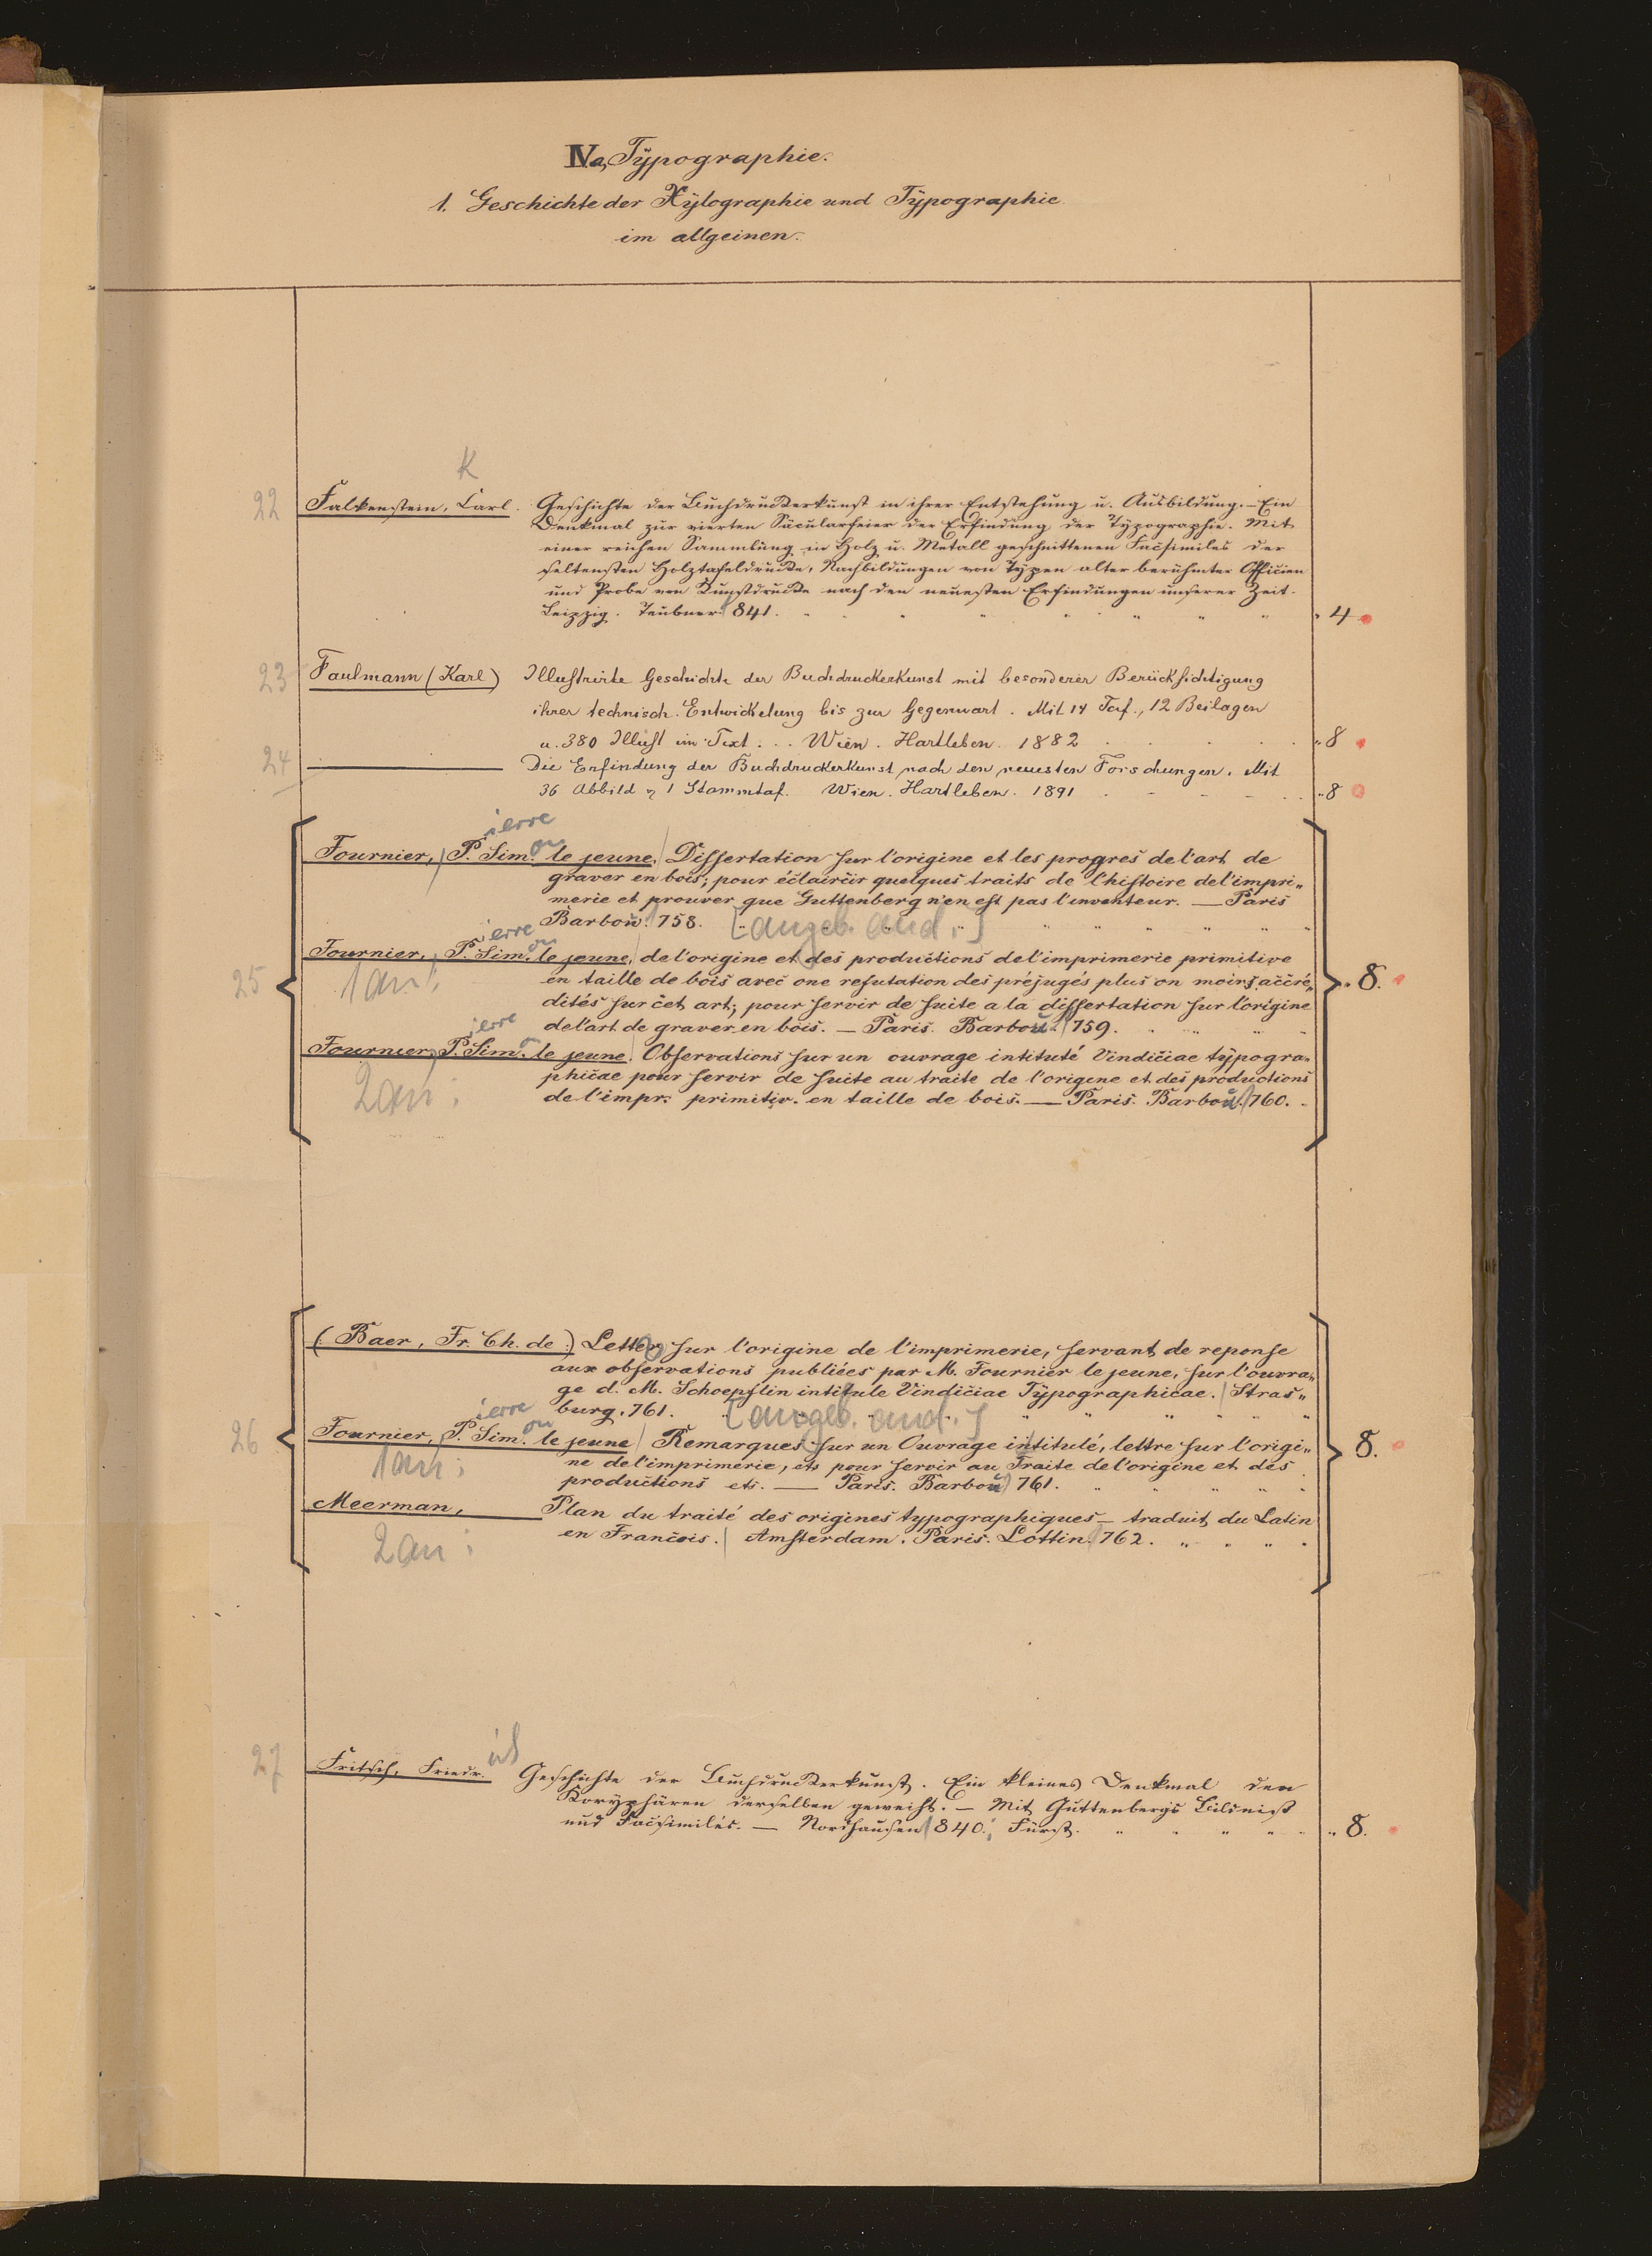 IVa, Typographie.
1. Geschichte der Xylographie und Typographie
im allgeinen.
K
22 Falkenstein, Carl. Geschichte der Buchdruckerkunst in ihrer Entstehung u. Ausbildung. – Ein
Denkmal zur vierten Säcularfeier der Erfindung der Typographie. Mit
einer reichen Sammlung in Holz u. Metall geschnittenen Facsimiles der
seltensten Holztafeldrucke, Nachbildungen von Typen alter berühmter Officien
und Probe von Kunstdrucke nach den neuesten Erfindungen unserer Zeit.
Leipzig. Teubner. 841. " 4
23 Faulmann (Karl) Illustrirte Geschichte der Buchdruckerkunst mit besonderer Berücksichtigung
ihrer technisch. Entwickelung bis zur Gegenwart. Mit 14 Taf., 12 Beilagen
u. 380 Illust im Text. .. Wien. Hartleben. 1882 " 8
24 ——— Die Erfindung der Buchdruckerkunst nach den neuesten Forschungen. Mit
36 Abbild u 1 Stammtaf. Wien. Hartleben. 1891 " 8
ierre
Fournier, P. Sim.on le jeune. Dissertation sur l'origine et les progres de l'art de
graver en bois; pour éclaircir quelques traits de l'histoire de l'impri„
merie et prouver que Guttenberg n'en est pas l'inventeur. — Paris
Barbou. 758. [angeb. and.]
ierre
Fournier, P. Sim.on le jeune, de l'origine et des productions de l'imprimerie primitive
25 1 an: en taille de bois avec one refutation des préjugés plus on moins accré„ " 8.
dités sur cet art; pour servir de suite a la dissertation sur l'origine
ierre de l'art de graver en bois. — Paris. Barbou. 759.
Fournier, P. Sim.on le jeune. Observations sur un ouvrage intituté Vindiciae typogra„
phicae pour servir de suite au traite de l'origene et des productions
2 an: de l'impr: primitiv. en taille de bois. — Paris. Barbou. 760.
(: Baer, Fr. Ch. de :) Letter sur l'origine de l'imprimerie, servant de reponse
aux observations publiées par M. Fournier le jeune, sur l'ouvra„
ge d. M. Schoepflin intitule Vindiciae Typographicae. Stras„
ierre burg. 761. [angeb. and.]
26 Fournier, P. Sim.on le jeune Remarques sur un Ouvrage intitulé, lettre sur l'origi„ 8.
1 an: ne de l'imprimerie, ets pour servir au Traite de l'origine et des
productions ets. — Paris. Barbou. 761.
Meerman, Plan du traité des origines typographiques — traduit du Latin
2 an: en Francois. Amsterdam. Paris. Lottin. 762.
27 Fritsch, Friedr.ich Geschichte der Buchdruckerkunst. Ein kleines Denkmal den
Koryphären derselben geweiht. — Mit Guttenbergs Bildniß
und Facsimiles. — Nordhausen 840. Fürst. " 8.